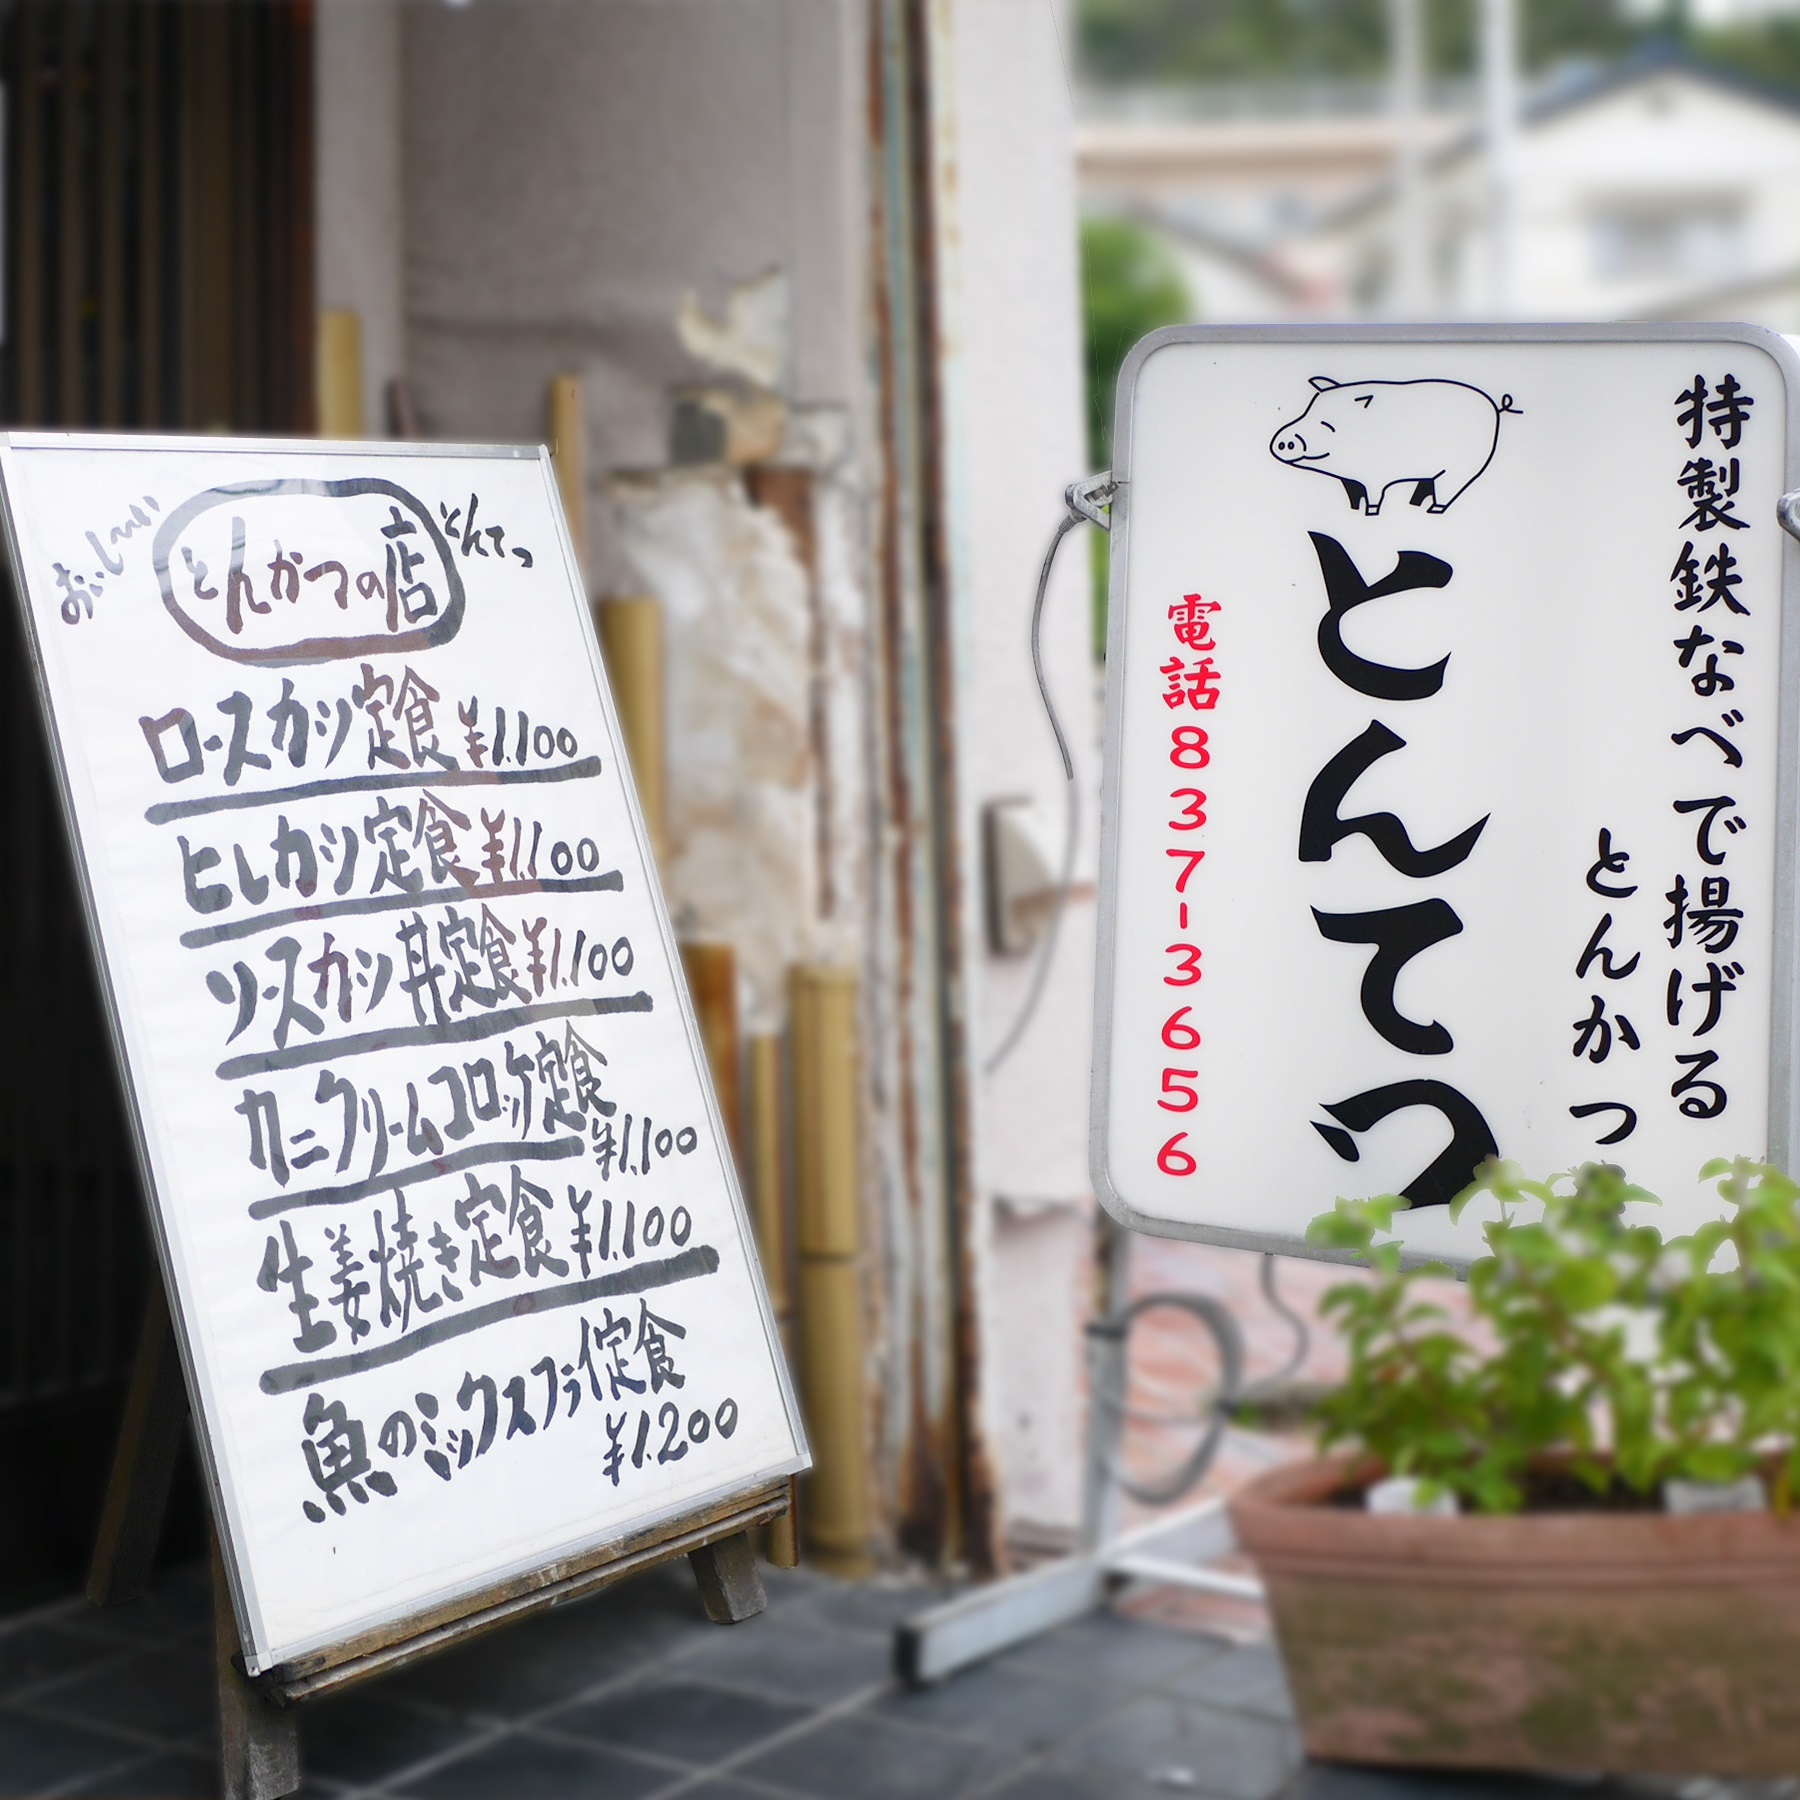 おいし〜い
とんかつの店
とんてつ
ロースカツ定食 ¥1.100
ヒレカツ定食 ¥1.100
ソースカツ丼定食 ¥1.100
カニクリームコロッケ定食
¥1.100
生姜焼き定食 ¥1.100
魚のミックスフライ定食
¥1.200
特製鉄なべで揚げる
とんかつ
とんてつ
電話837-3656